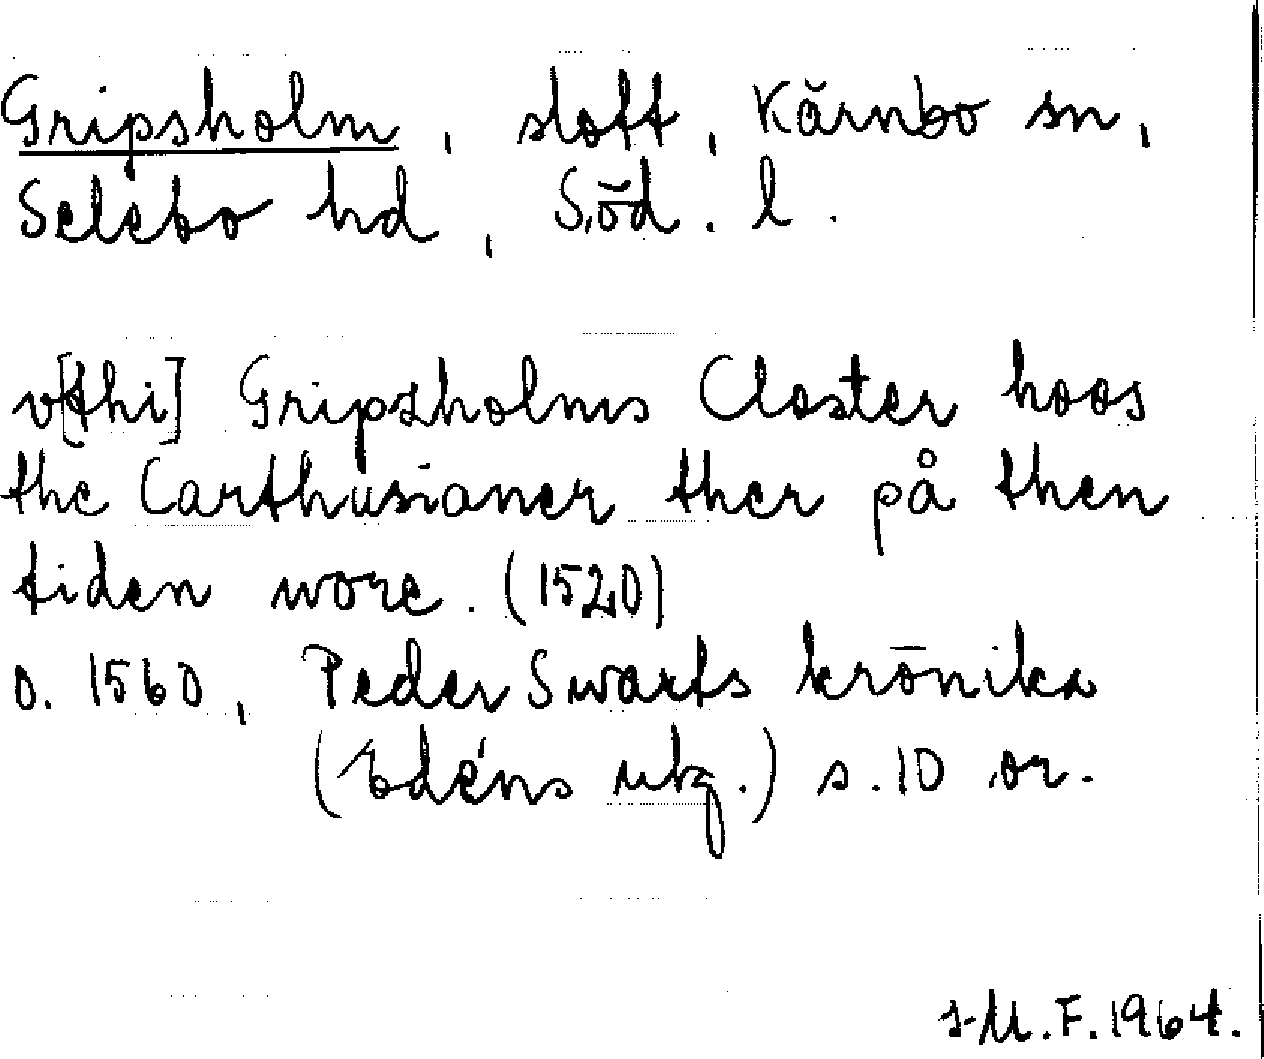 Gripsholm, slott, Kärnbo sn,
Selebo hd, Söd. l.
v[thi] Gripszholms Closter hoos
the Carthusianer ther på then
tiden wore. (1520)
o. 1560, Peder Swarts krönika
(Edéns utg.) s. 10 or.
I-M. F. 1964.